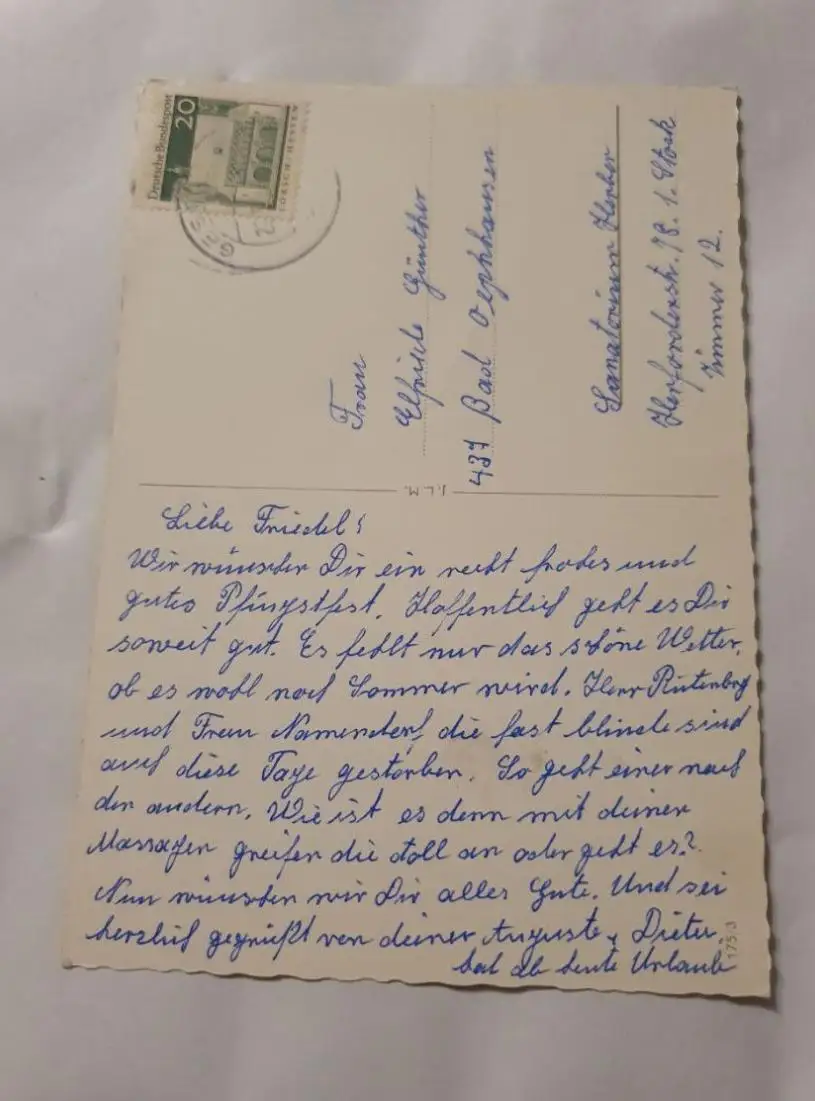 Deutsche Bundespost
20
LORSCH · HESSEN
Frau
Elfriede Günther
497 Bad Oeynhausen
Sanatorium
Herforderstr. 98. 1. Stock
Zimmer 12.
J.L.M.
Liebe Friedel!
Wir wünschen Dir ein recht frohes und
gutes Pfingstfest. Hoffentlich geht es Dir
soweit gut. Es fehlt nur das schöne Wetter,
ob es wohl noch Sommer wird. Herr
und Frau Namendorf, die fast blinde sind
auch diese Tage gestorben. So geht einer nach
den andern. Wie ist es denn mit deinen
Massagen greifen die doll an oder geht es?
Nun wünschen wir Dir alles Gute. Und sei
herzlich gegrüßt von deiner Auguste, Dieter
hat ab heute Urlaub
175/3